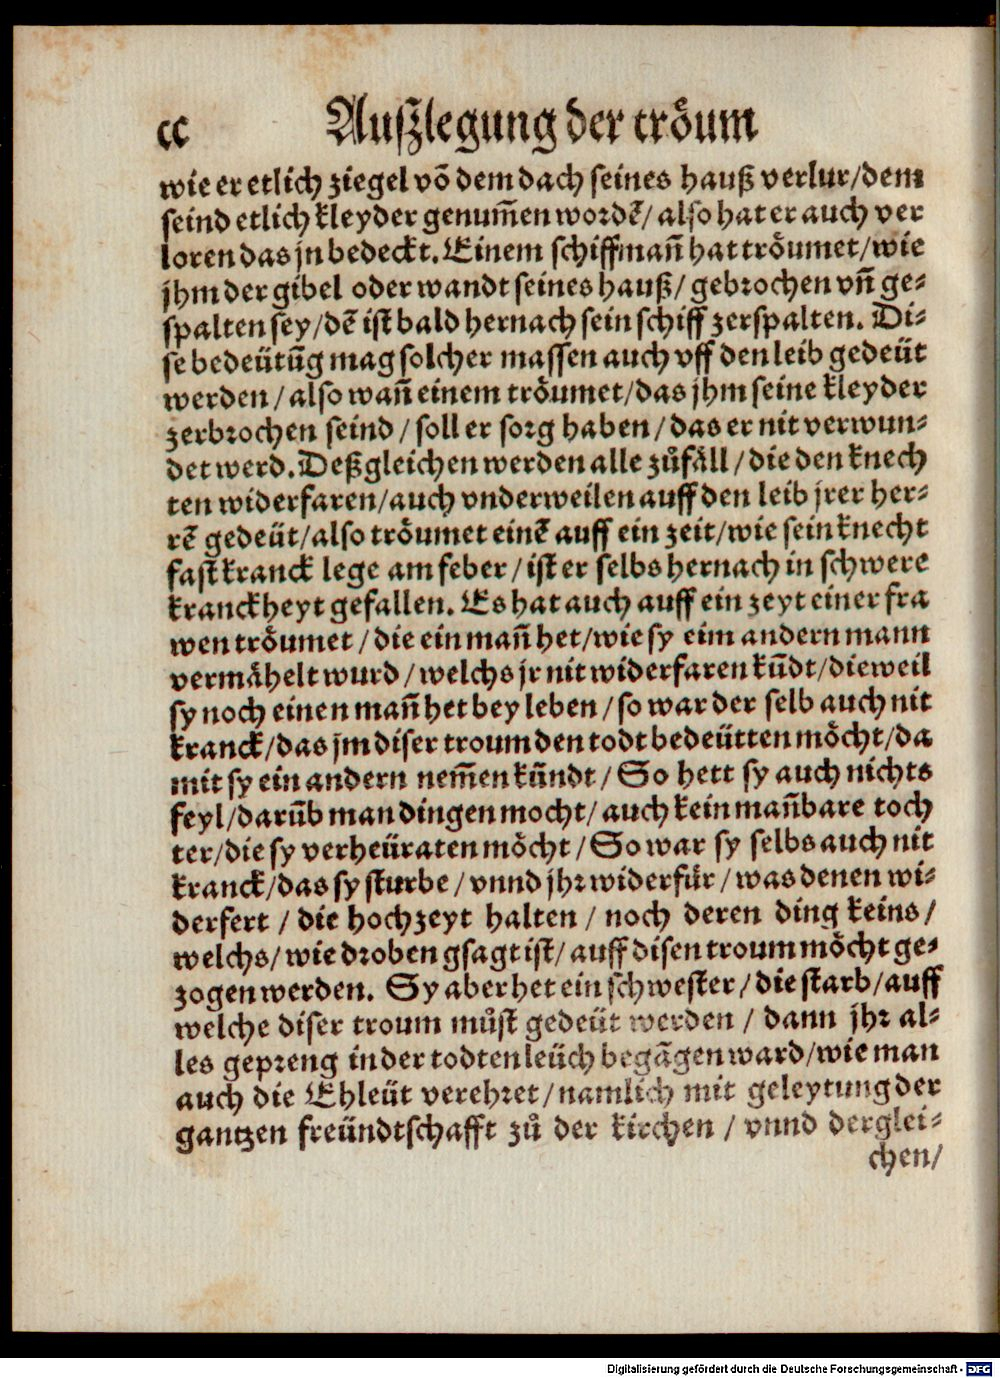 cc Auſzlegung der trôum
wie er etlich ziegel võ dem dach ſeines hauß verlur/dem
ſeind etlich kleyder genum̃en wordẽ/ alſo hat er auch ver
loren das jn bedeckt. Einem ſchiffmañ hat trôumet/wie
jhm der gibel oder wandt ſeines hauß/ gebrochen vñ ge⸗
ſpalten ſey/dẽ iſt bald hernach ſein ſchiff zerſpalten. Di⸗
ſe bedeütũg mag ſolcher maſſen auch vff den leib gedeüt
werden/ alſo wañ einem trôumet/das jhm ſeine kleyder
zerbrochen ſeind/ ſoll er ſorg haben/das er nit verwun⸗
det werd. Deßgleichen werden alle zůfäll/die den knech
ten widerfaren/auch vnderweilen auff den leib jrer her⸗
rẽ gedeüt/alſo trôumet einẽ auff ein zeit/wie ſein knecht
faſt kranck lege am feber/iſt er ſelbs hernach in ſchwere
kranckheyt gefallen. Es hat auch auff ein zeyt einer fra
wen trôumet/die ein mañ het/wie ſy eim andern mann
vermähelt wurd/welchs jr nit widerfaren kũdt/dieweil
ſy noch einen mañ het bey leben/ſo war der ſelb auch nit
kranck/das jm diſer troum den todt bedeütten môcht/da
mit ſy ein andern nem̃en kündt/ So hett ſy auch nichts
feyl/darũb man dingen mocht/ auch kein mañbare toch
ter/die ſy verheüraten môcht/ So war ſy ſelbs auch nit
kranck/das ſy ſturbe/vnnd jhr widerfür/was denen wi⸗
derfert/ die hochzeyt halten/ noch deren ding keins/
welchs/wie droben gſagt iſt/ auff diſen troum môcht ge⸗
zogen werden. Sy aber het ein ſchweſter/die ſtarb/auff
welche diſer troum můſt gedeüt werden/ dann jhr al⸗
les gepreng in der todtenleüch begãgen ward/wie man
auch die Ehleüt verehret/namlich mit geleytung der
gantzen freündtſchafft zů der kirchen/ vnnd derglei⸗
chen/
Digitalisierung gefördert durch die Deutsche Forschungsgemeinschaft - DFG